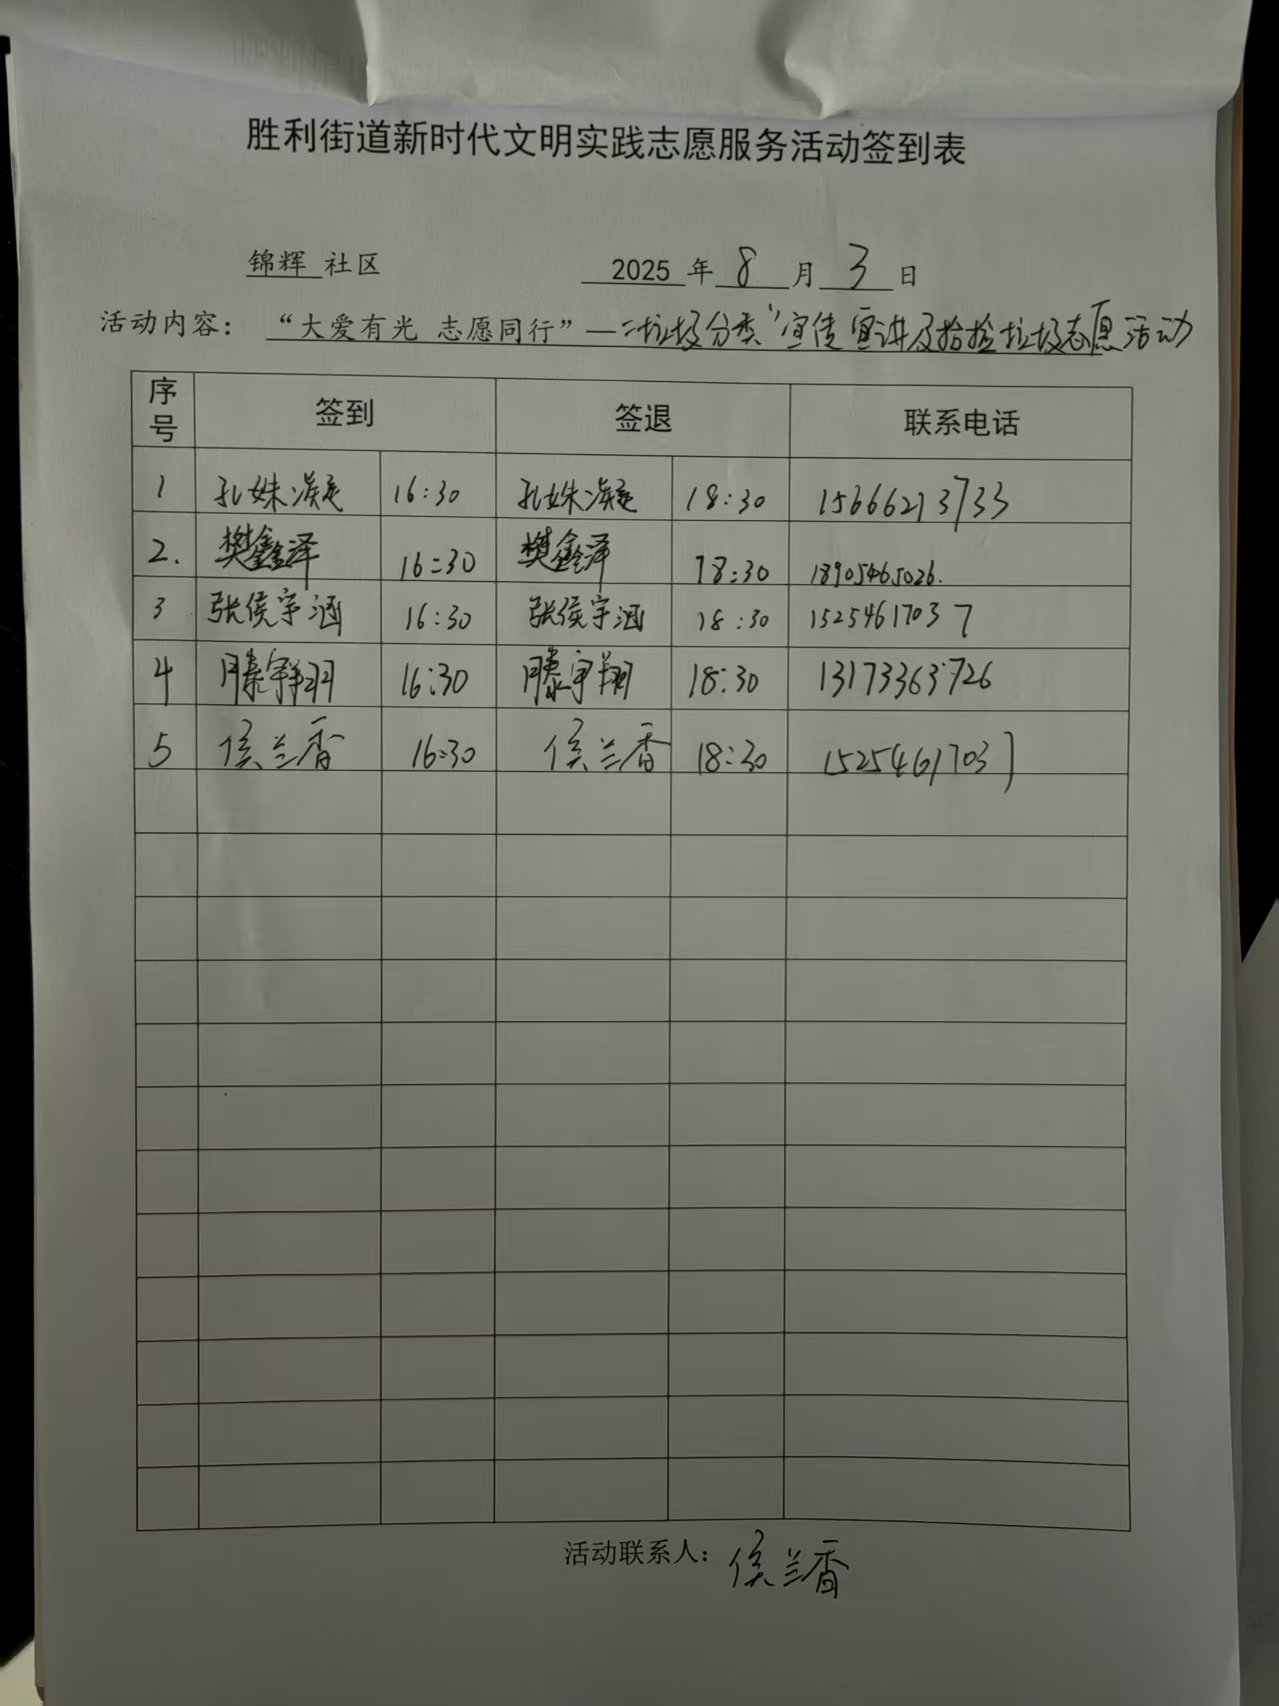 胜利街道新时代文明实践志愿服务活动签到表
锦辉 社区 2025 年 8 月 3 日
活动内容：“大爱有光 志愿同行”—“垃圾分类”宣传宣讲及拾捡垃圾志愿活动
序号 签到 签退 联系电话
1 孔姝凝 16:30 孔姝凝 18:30 15666213733
2. 樊鑫泽 16:30 樊鑫泽 18:30 18905465026.
3 张侯宇涵 16:30 张侯宇涵 18:30 15254617037
4 滕宇翔 16:30 滕宇翔 18:30 13173363726
5 侯兰香 16:30 侯兰香 18:30 15254617037
活动联系人：侯兰香